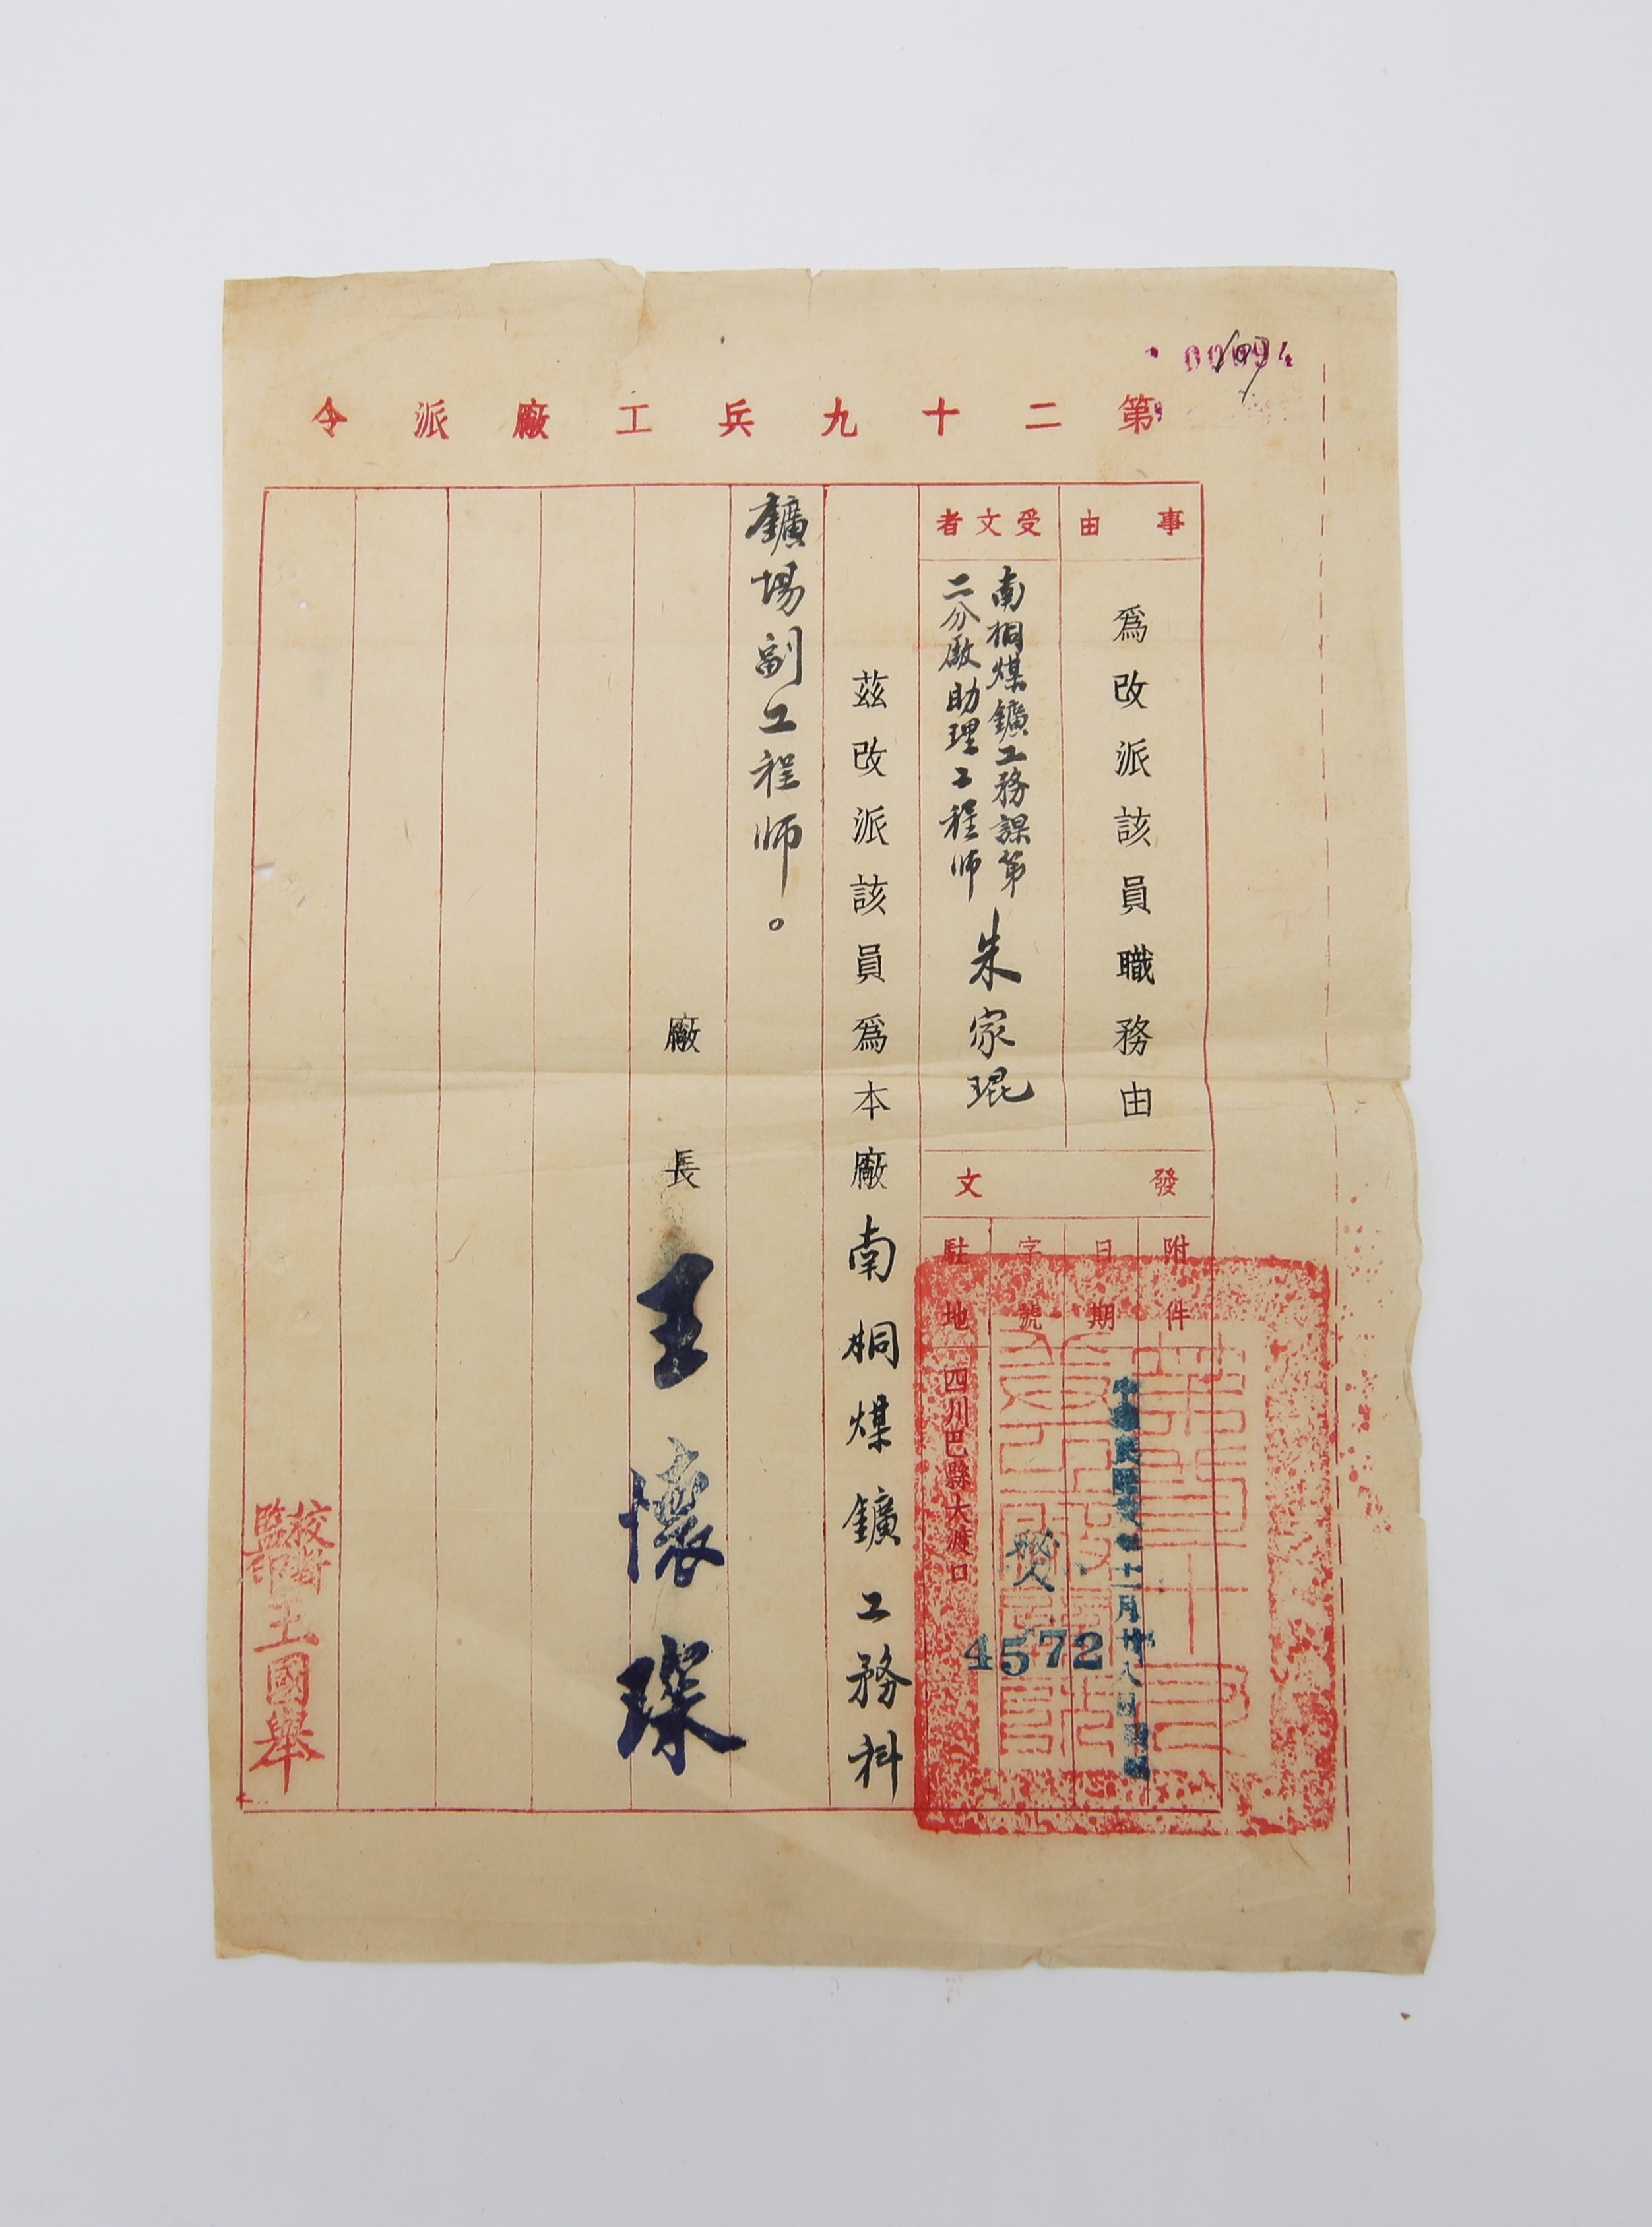 第二十九兵工廠派令
事由
為改派該員職務由
受文者
南桐煤鑛工務課第
二分廠助理工程師
朱家琨
發文
附件
日期
十一月廿八日
字號
4572
駐地
四川巴縣大渡口
茲改派該員為本廠南桐煤鑛工務科
鑛場副工程師。
廠長 王懷琛
校對
監印
王國舉